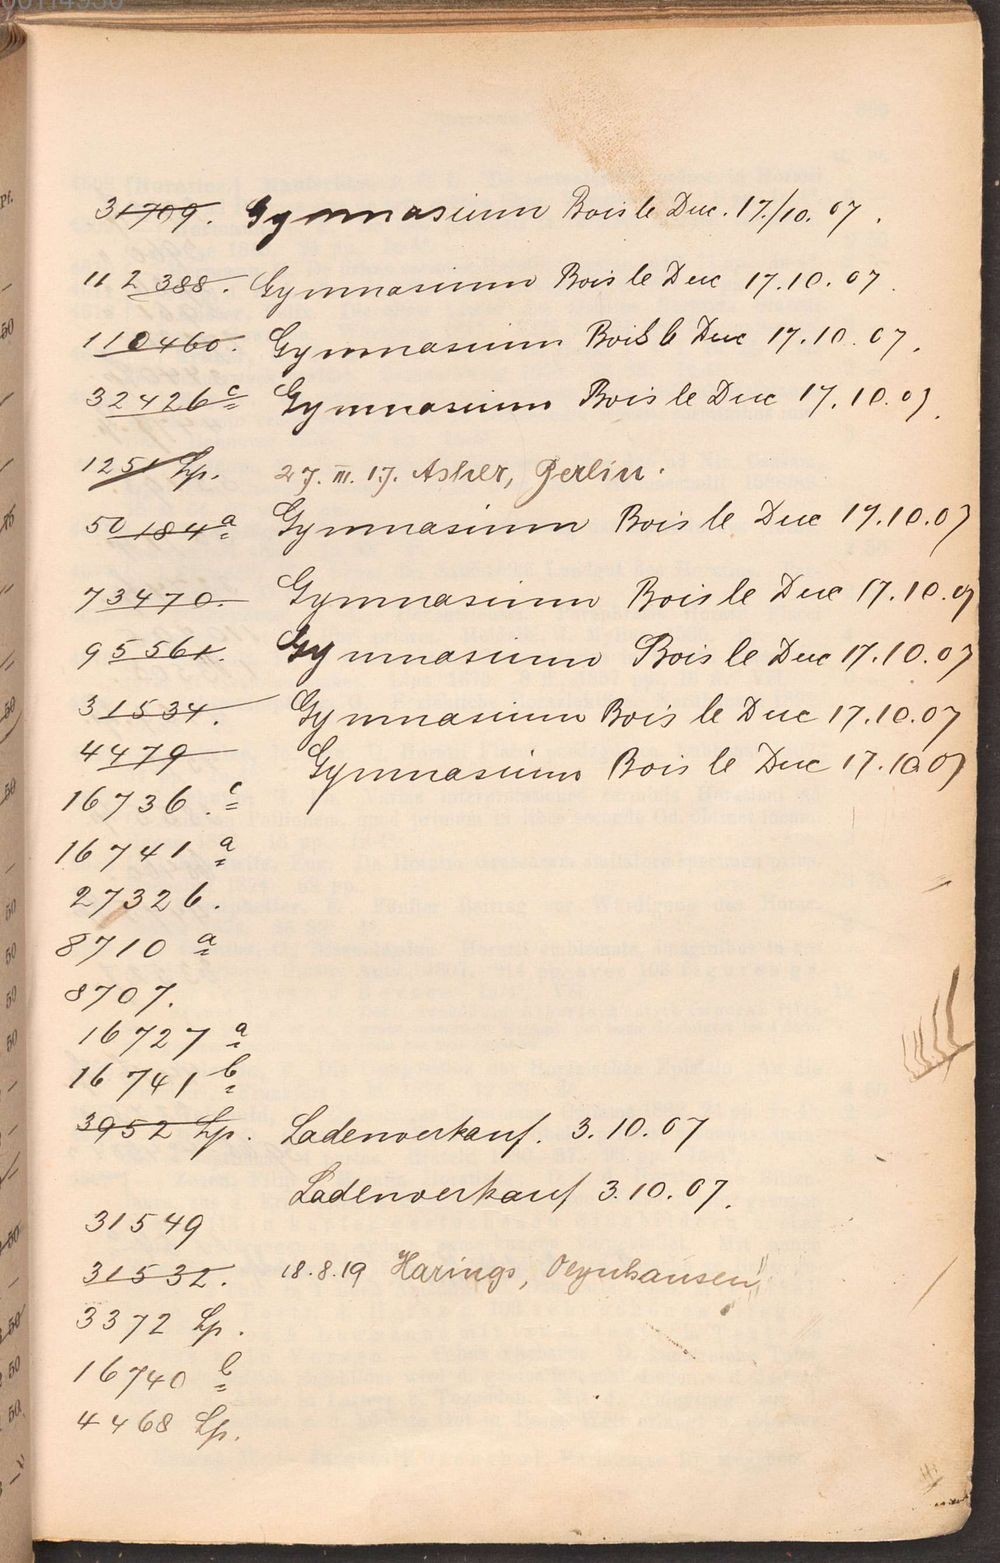 00114950
31709. Gymnasium Bois le Duc. 17./10. 07.
112388. Gymnasium Bois le Duc 17.10.07.
110460. Gymnasium Bois le Duc 17.10.07.
32426c Gymnasium Bois le Duc 17.10.07.
1251 Lp. 27. III. 17. Asher, Berlin.
50184a Gymnasium Bois le Duc 17.10.07
73470. Gymnasium Bois le Duc 17.10.07
95561. Gymnasium Bois le Duc 17.10.07
31534. Gymnasium Bois le Duc 17.10.07
4479 Gymnasium Bois le Duc 17.10.07
16736.c
16741 a
27326.
8710 a
8707.
16727 a
16741 b
3952 Lp. Ladenverkauf. 3.10.07
Ladenverkauf 3.10.07.
31549
31532. 18.8.19 Harings, Oeynhausen
3372 Lp.
16740 b
4468 Lp.